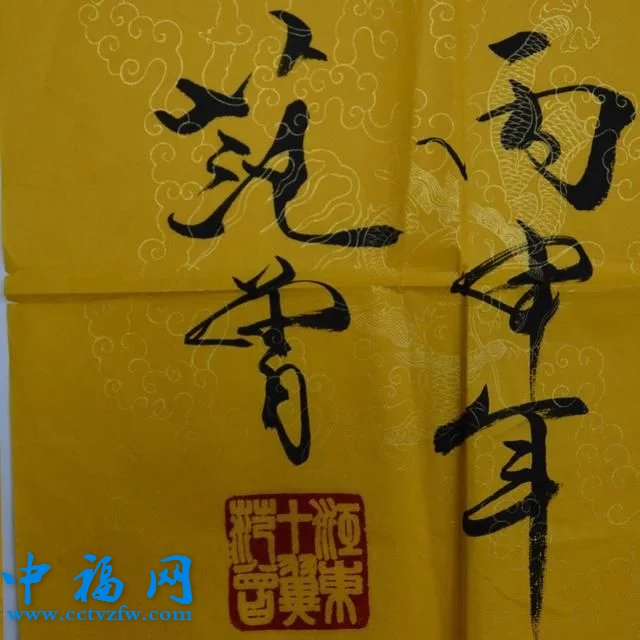 丙申年
范曾
江東
十翼
范曾
中福网
www.cctvzfw.com